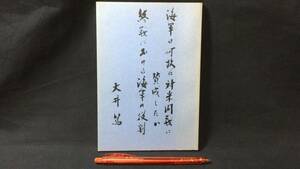 海軍は何故に対米開戦に
賛成したか
終戦に於ける海軍の役割
大井篤